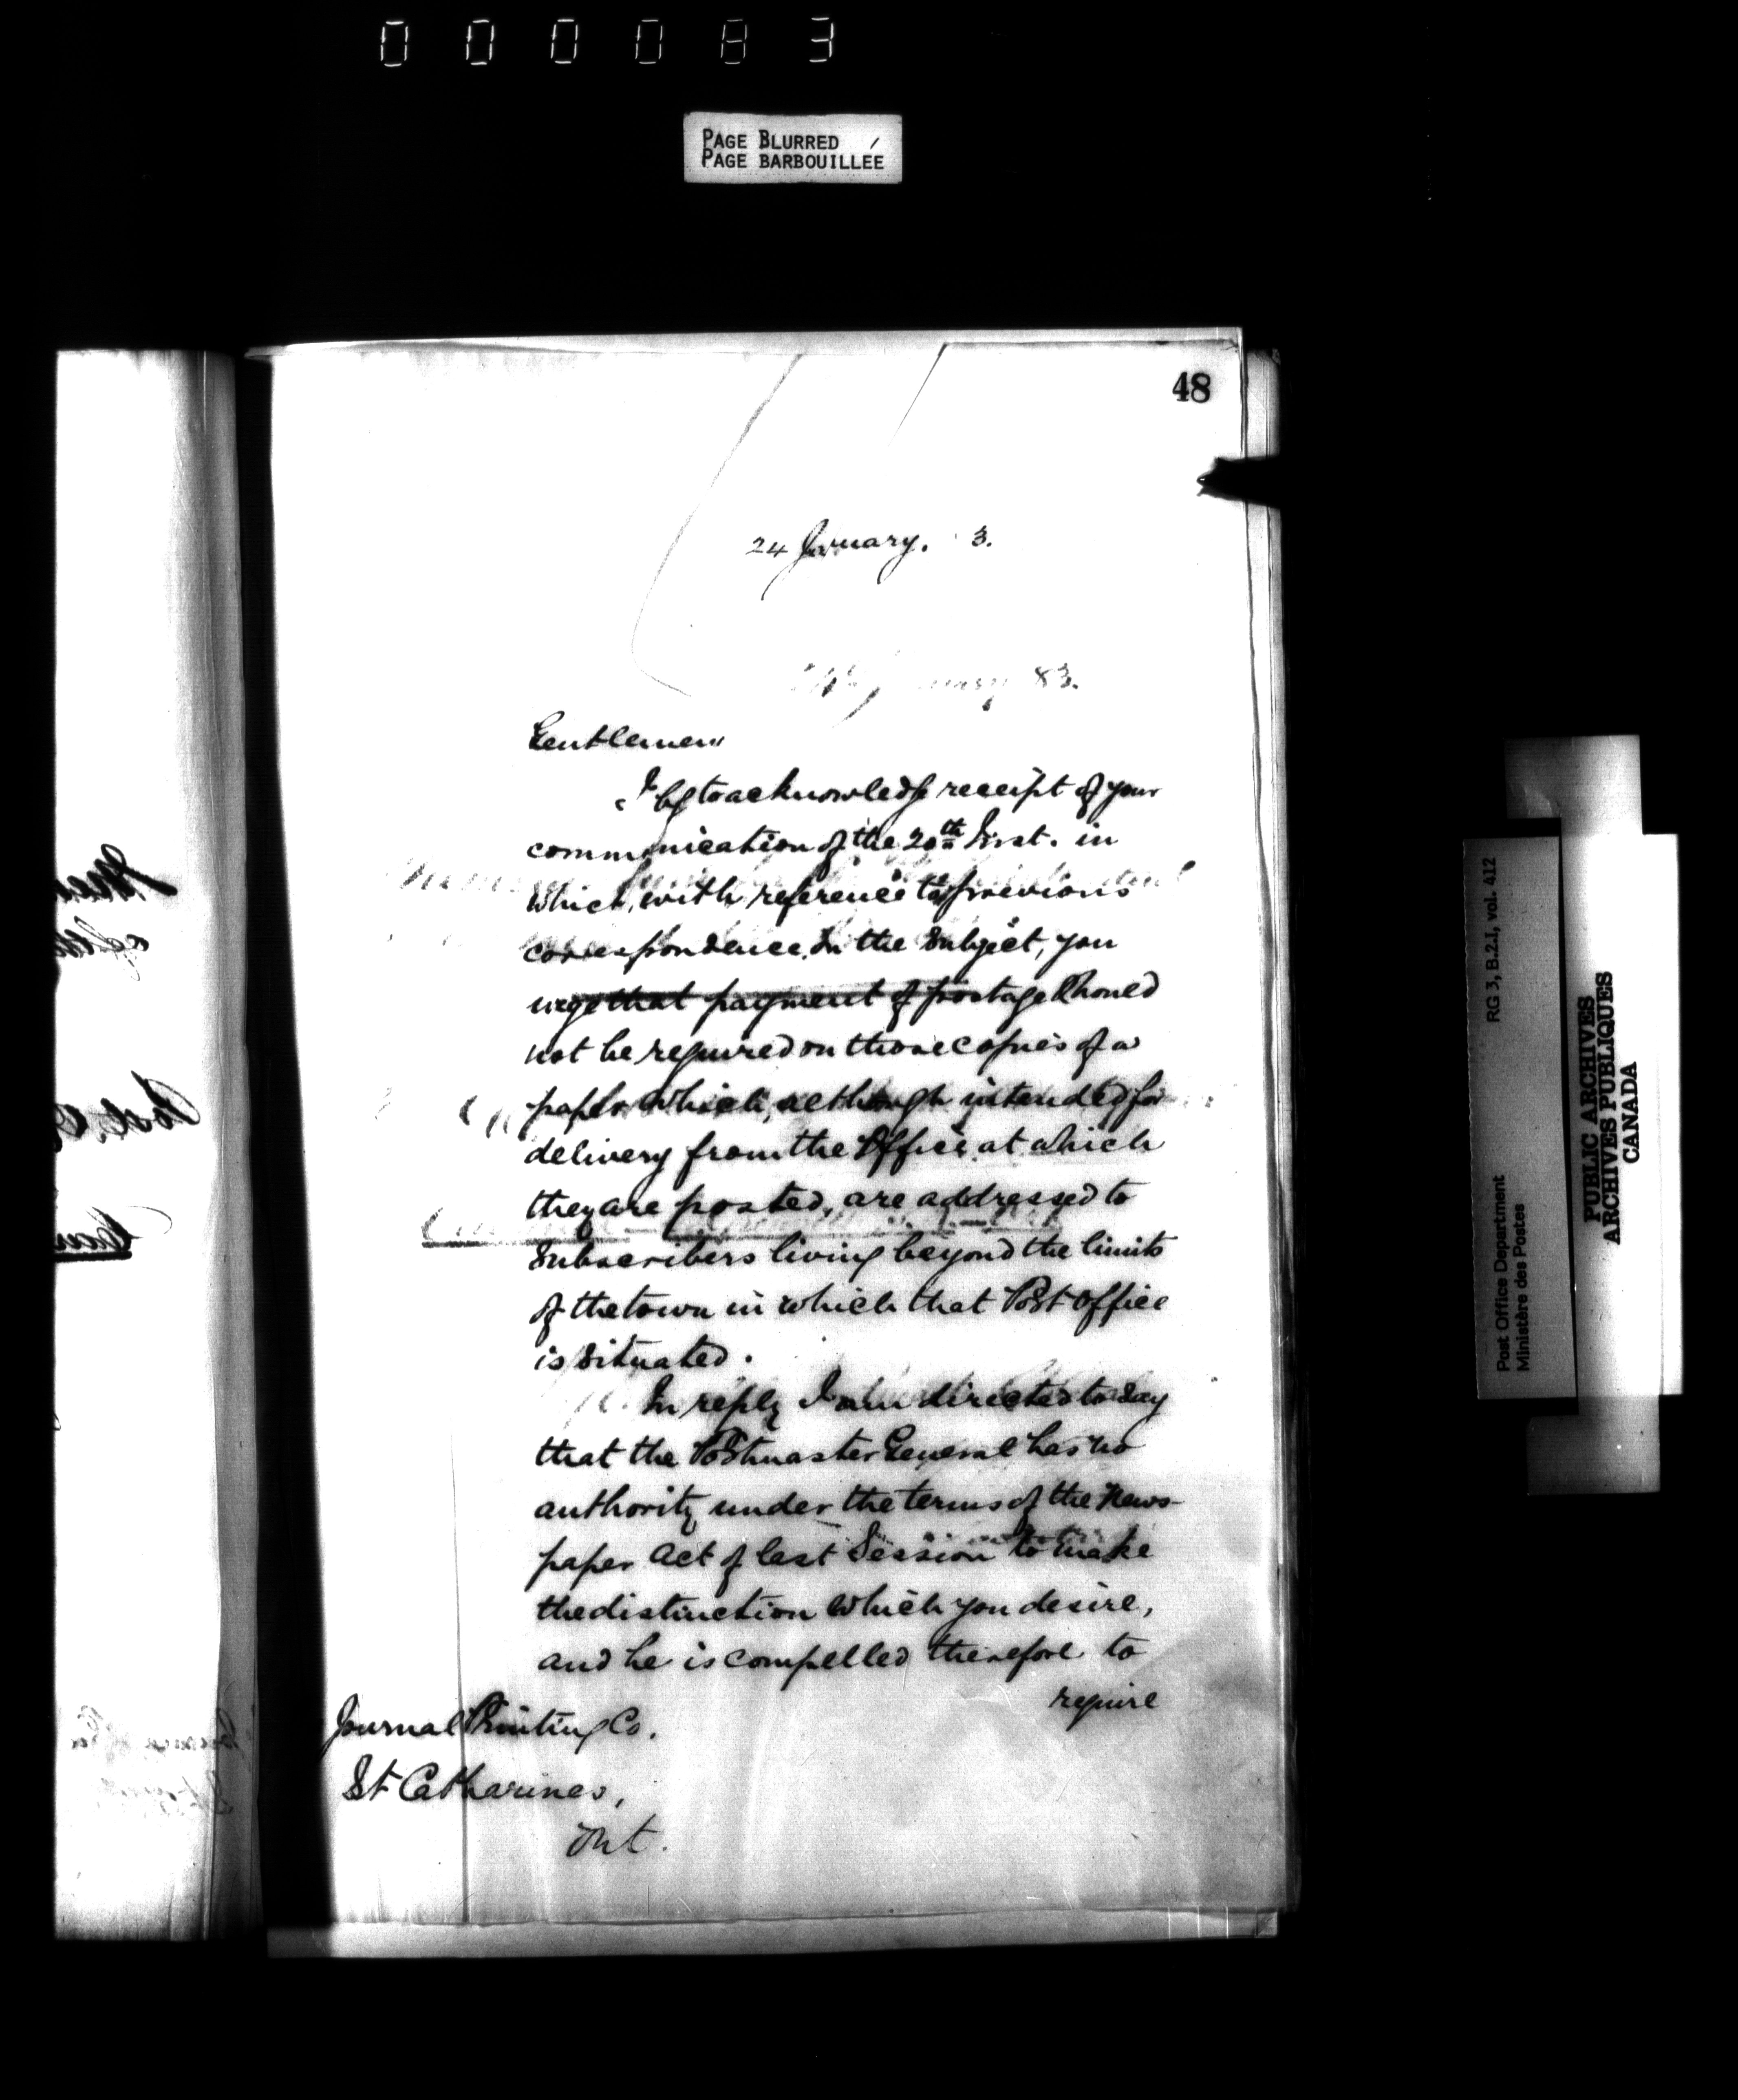 000083
PAGE BLURRED
PAGE BARBOUILLÉE
48
24 January. 3.
83.
Gentlemen
I beg to acknowledge receipt of your
communication of the 20th Inst. in
which, with reference to previous
correspondence on the subject, you
urge that payment of postage should
not be required on those copies of a
paper which, although intended for
delivery from the Office at which
they are posted, are addressed to
Subscribers living beyond the limits
of the town in which that Post Office
is situated.
In reply I am directed to say
that the Postmaster General has no
authority under the terms of the News-
paper Act of last Session to make
the distinction which you desire,
and he is compelled therefore to
require
Journal Printing Co.
St Catharines,
Ont.
RG 3, B.2.1, vol. 412
Post Office Department
Ministère des Postes
PUBLIC ARCHIVES
ARCHIVES PUBLIQUES
CANADA